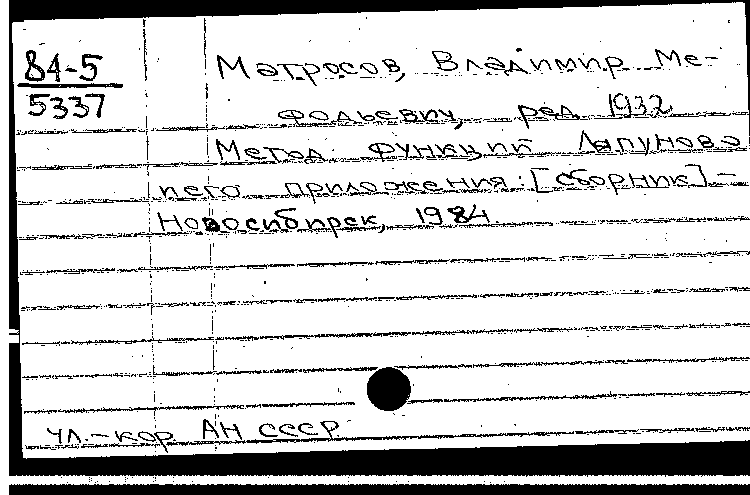 84-5
5337
Матросов, Владимир Ме-
фодьевич, ред. 1932
Метод функций Ляпунова
и его приложения: [сборник] -
Новосибирск, 1984.
чл.-кор АН СССР